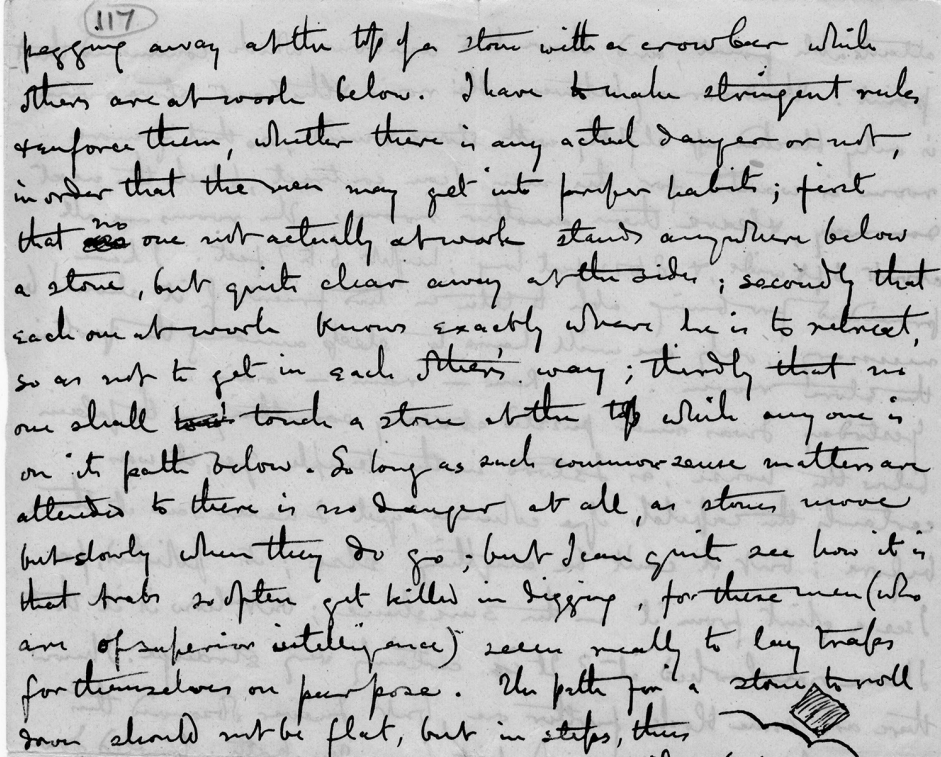 117
pegging away at the top of a stone with a crowbar while
others are at work below. I have to make stringent rules
& enforce them, whether there is any actual danger or not,
in order that the men may get into proper habits; first
that no one not actually at work stands anywhere below
a stone, but quite clear away at the side; secondly that
each one at work knows exactly where he is to retreat,
so as not to get in each other's way; thirdly that no
one shall touch a stone at the top while any one is
on its path below. So long as such common sense matters are
attended to there is no danger at all, as stones move
but slowly when they do go; but I can quite see how it is
that Arabs so often get killed in digging, for these men (who
are of superior intelligence) seem really to lay traps
for themselves on purpose. The path for a stone to roll
down should not be flat, but in steps, thus